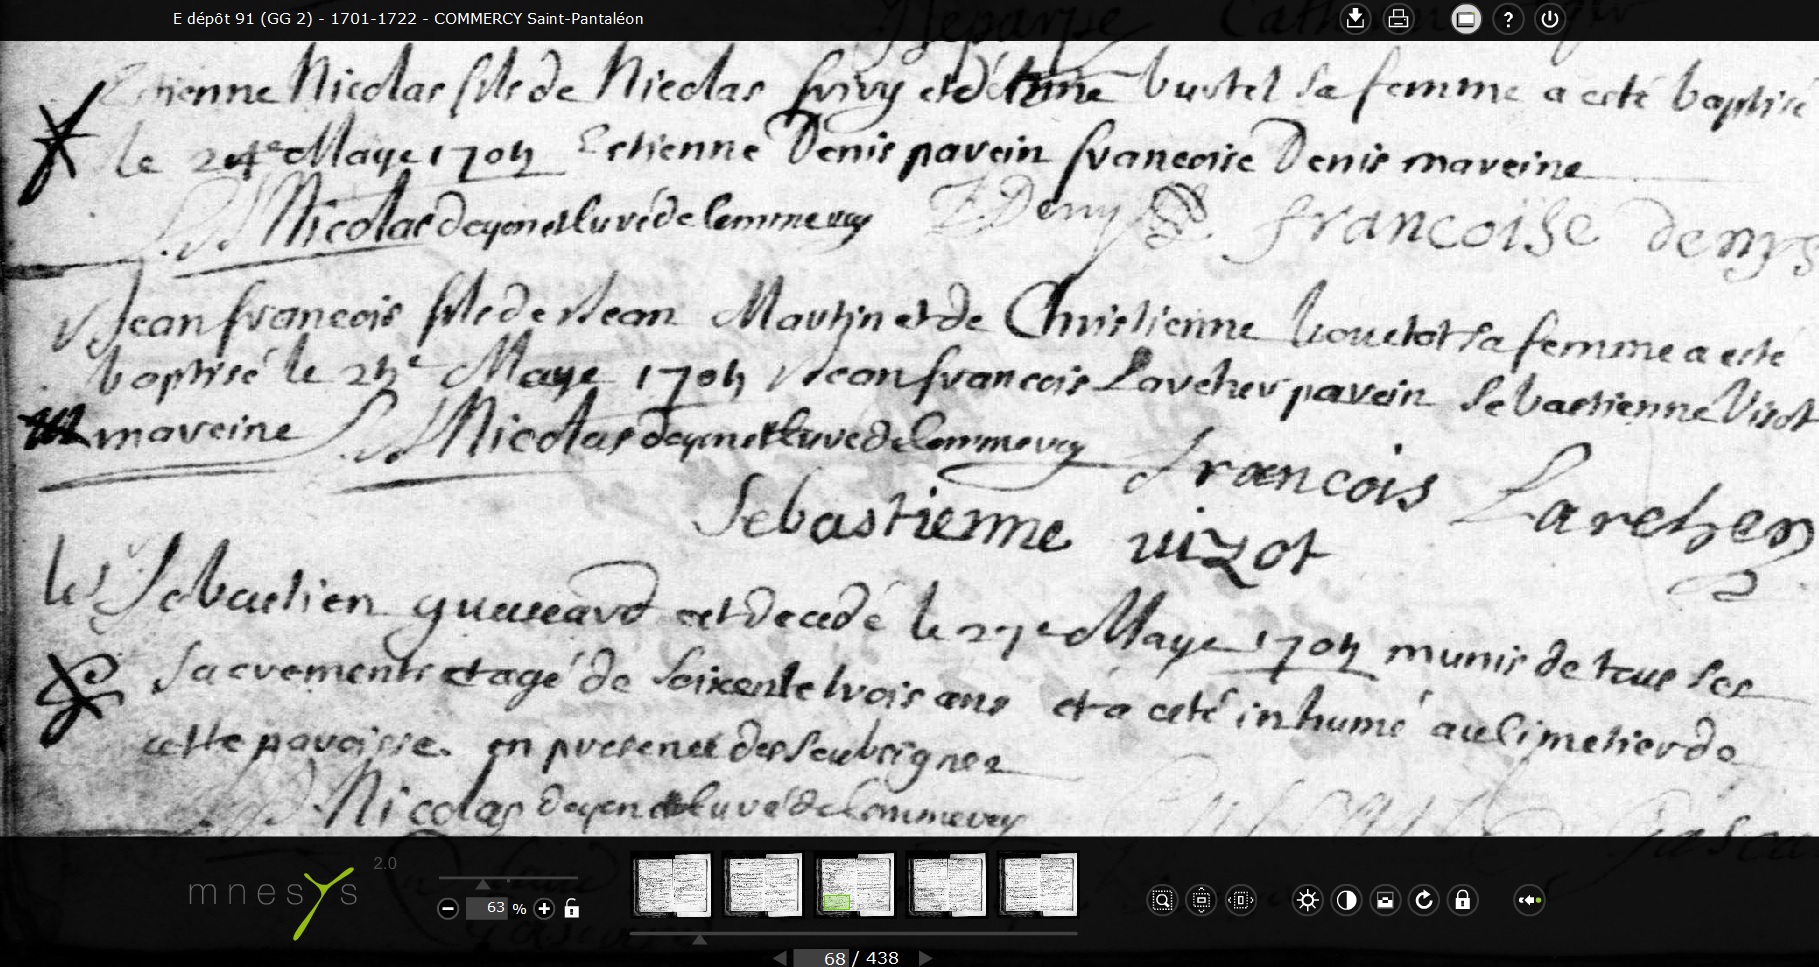 E dépôt 91 (GG 2) - 1701-1722 - COMMERCY Saint-Pantaléon
Estienne Nicolas fils de Nicolas et d' sa femme a esté baptisé
le 24e Maye 1704 Estienne Denis parein francoise Denis mareine
Nicolas doyen et curé de Commercy Deny francoise denys
Jean francois fils de Jean Martin et de Christienne sa femme a esté
baptisé le 24e Maye 1704 Jean francois Larcher parein Sebastienne Visot
mareine Nicolas doyen et curé de Commercy francois Larcher
Sebastienne vizot
Sebastien est decedé le 27e Maye 1704 munis de tous ses
sacrements et agé de soixente trois ans et a eté inhumé au Cimetier de
cette paroisse. en presence des soubsignez
Nicolas doyen et curé de Commercy
mnesys 2.0
63 %
68 / 438